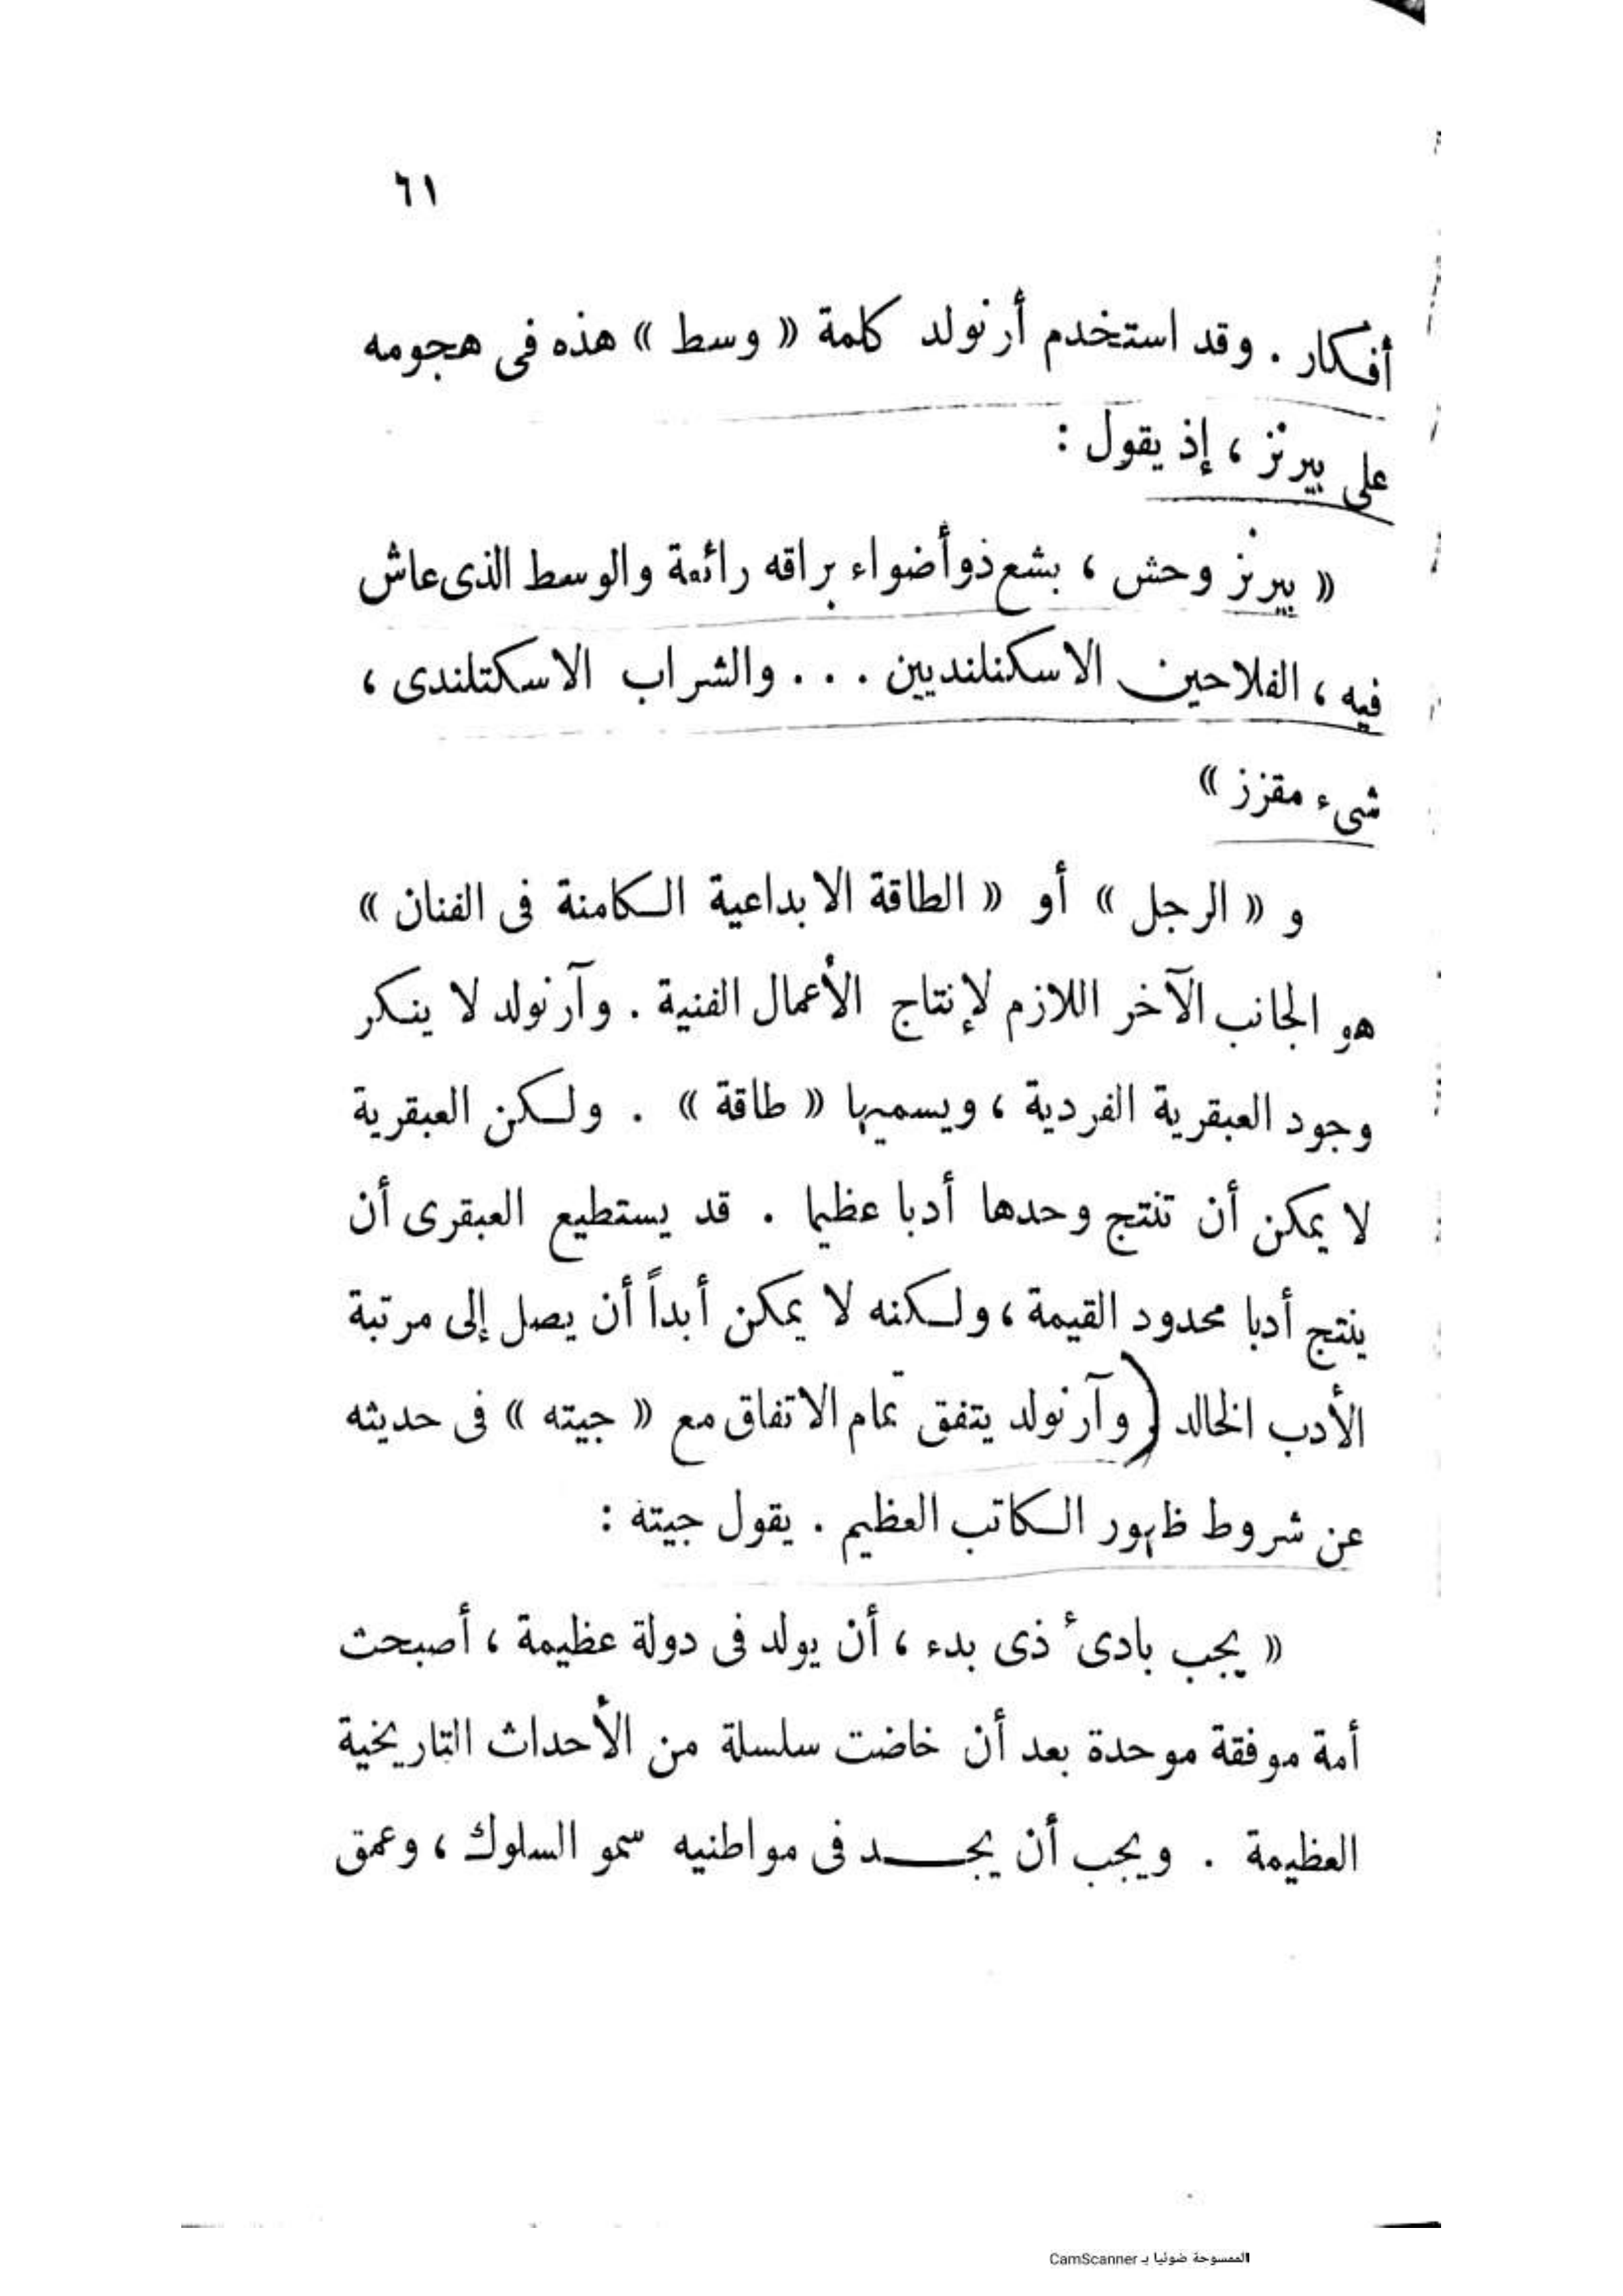 ٦١
أفكار . وقد استخدم أرنولد كلمة « وسط » هذه فى هجومه
على بيرنز ، إذ يقول :
« بيرنز وحش ، بشع ذو أضواء براقه رائعة والوسط الذى عاش
فيه ، الفلاحين الاسكنلنديين . . . والشراب الاسكتلندى ،
شىء مقزز »
و « الرجل » أو « الطاقة الابداعية الكامنة فى الفنان »
هو الجانب الآخر اللازم لإنتاج الأعمال الفنية . وآرنولد لا ينكر
وجود العبقرية الفردية ، ويسميها « طاقة » . ولكن العبقرية
لا يمكن أن تنتج وحدها أدبا عظيما . قد يستطيع العبقرى أن
ينتج أدبا محدود القيمة ، ولكنه لا يمكن أبداً أن يصل إلى مرتبة
الأدب الخالد . وآرنولد يتفق تمام الاتفاق مع « جيته » فى حديثه
عن شروط ظهور الكاتب العظيم . يقول جيته :
« يجب بادىء ذى بدء ، أن يولد فى دولة عظيمة ، أصبحت
أمة موفقة موحدة بعد أن خاضت سلسلة من الأحداث التاريخية
العظيمة . ويجب أن يجد فى مواطنيه سمو السلوك ، وعمق
الممسوحة ضوئيا بـ CamScanner